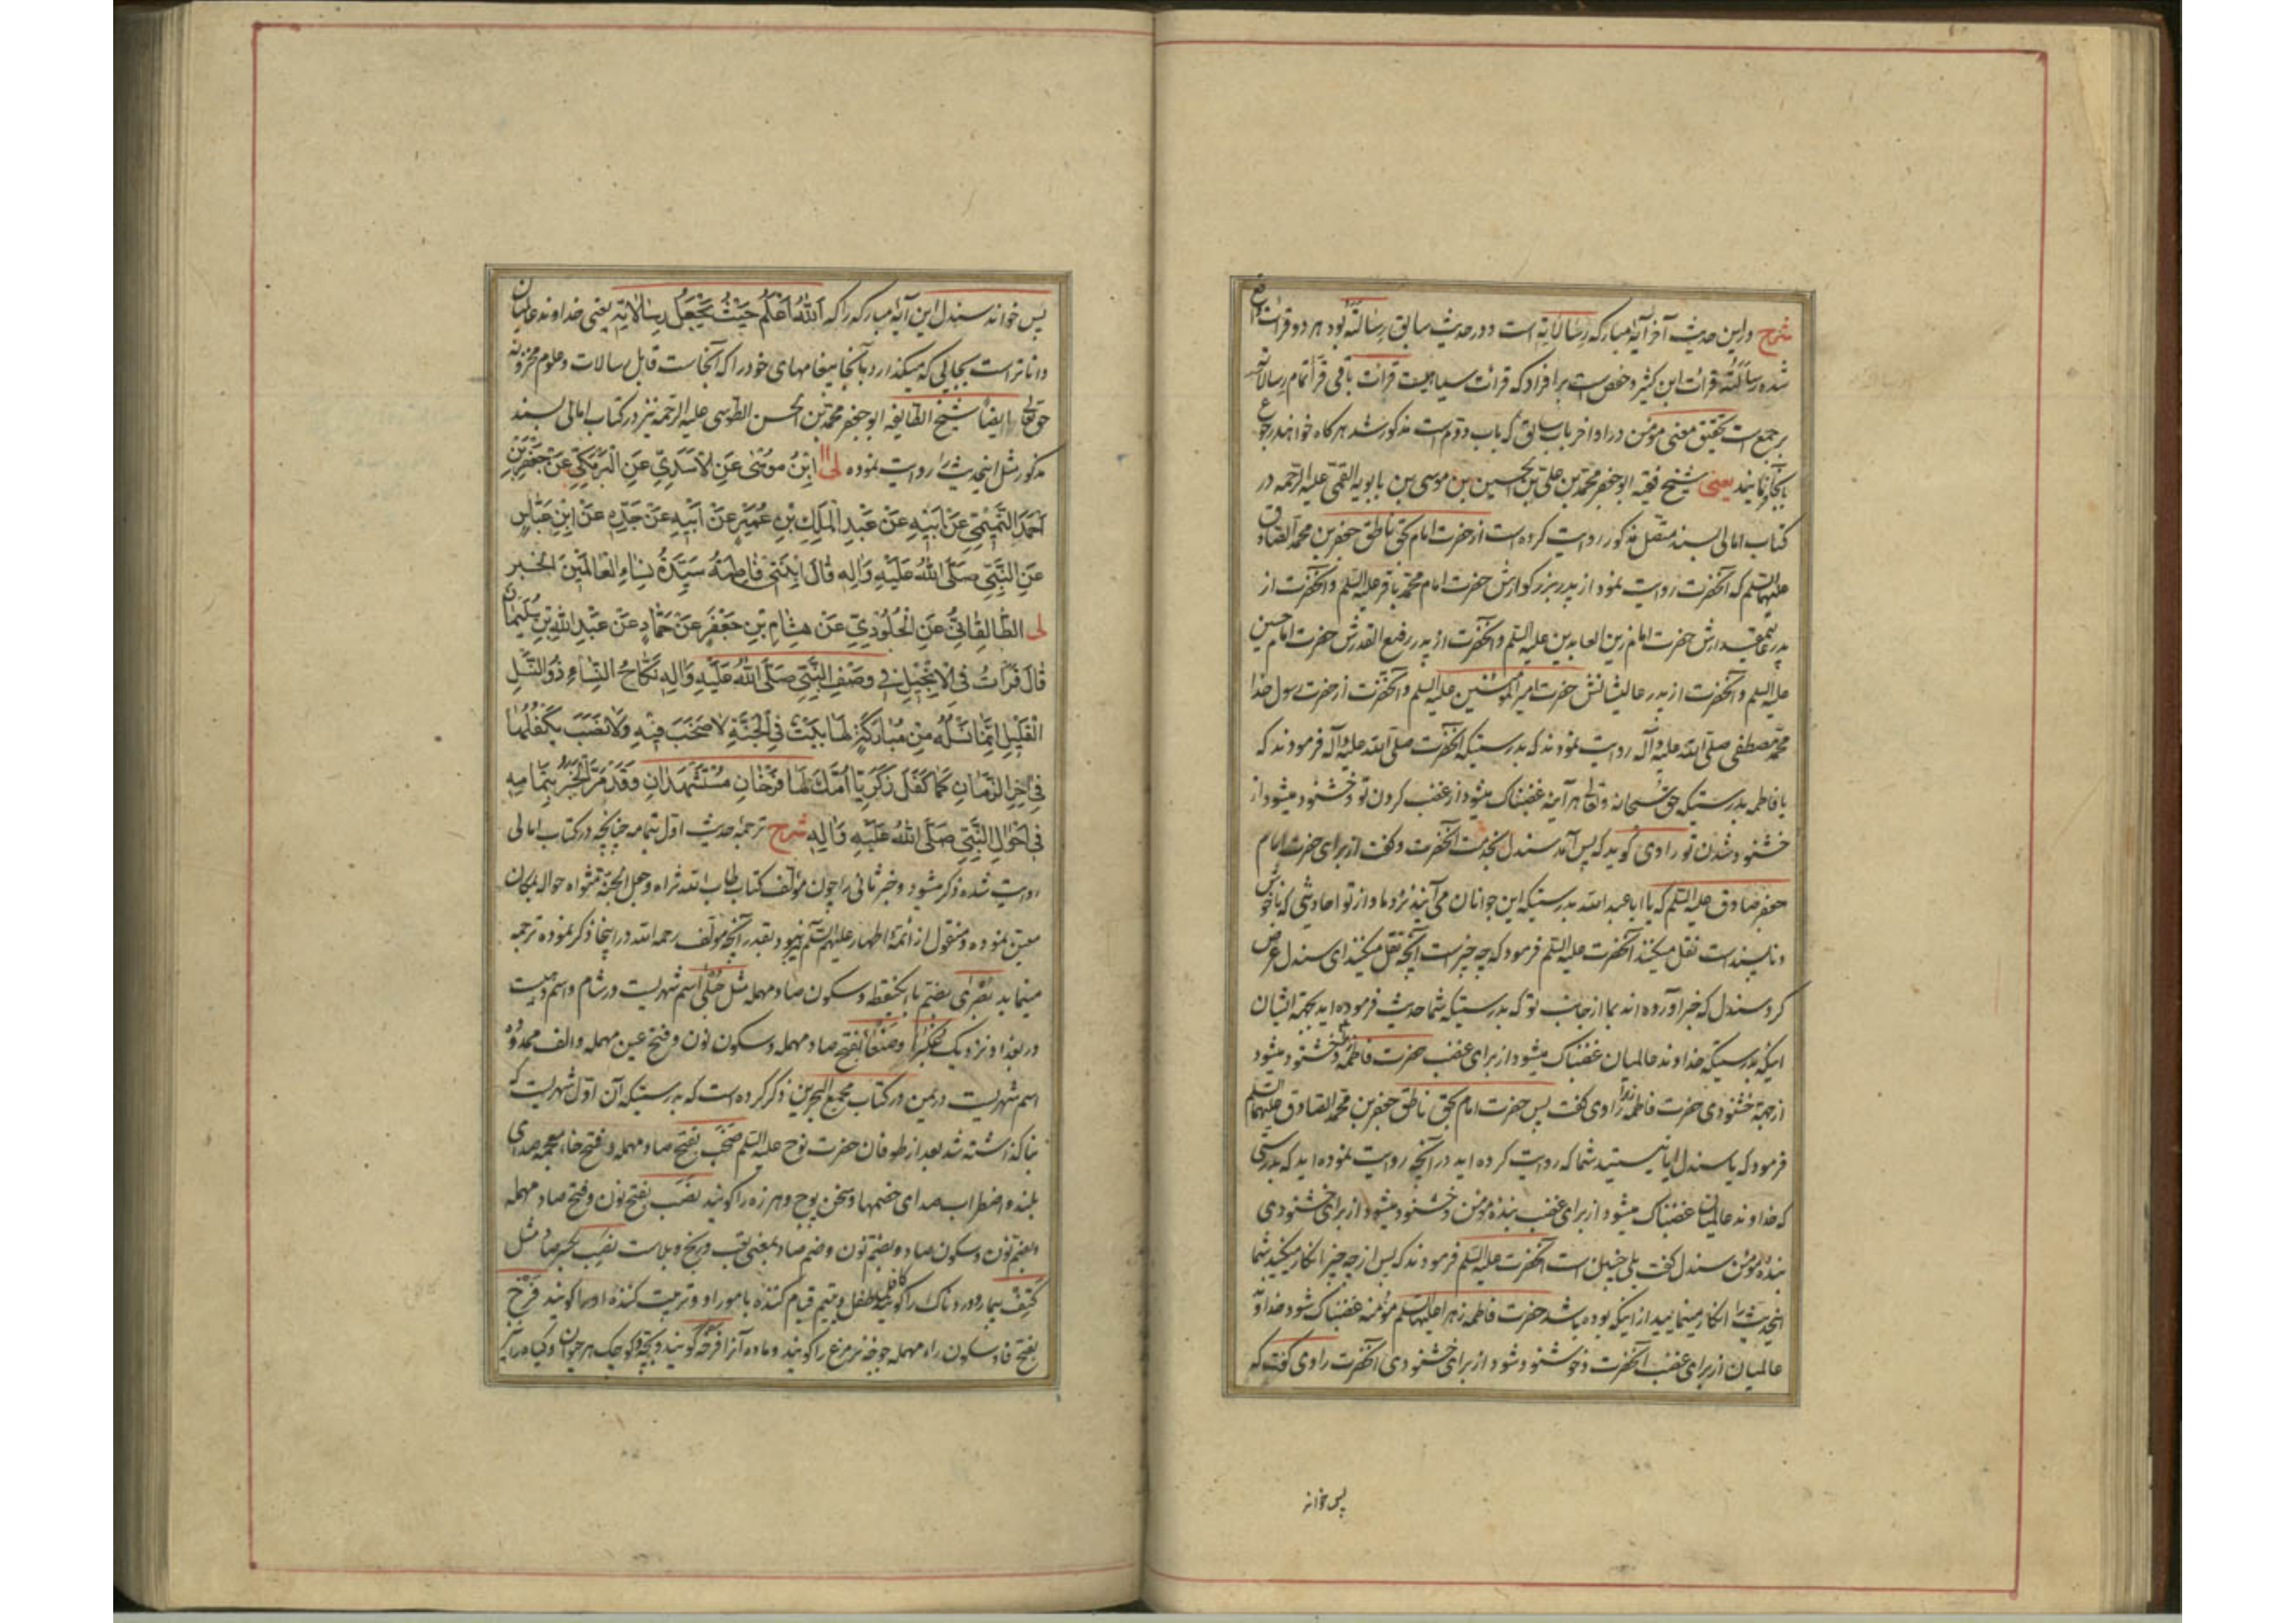 شرح و در این حدیث آخر آیهٔ مبارکه رسالاته است و در حدیث سابق رسالته بود هر دو قرائت واقع
شده رسالته قرائت ابن کثیر و حفص است بر افراد که قرائت سیاهیست قرائت باقی قرا تمام رسالاته
بر جمع است تحقیق معنی مؤمن در اواخر باب سابق که باب دوّم است مذکور شد هرگاه خواهند رجوع
بآنجا نمایند یعنی شیخ فقیه ابو جعفر محمد بن علی بن الحسین بن موسی بن بابویه القمی علیه الرحمه در
کتاب امالی بسند متصل مذکور روایت کرده است از حضرت امام بحق ناطق جعفر بن محمد الصادق
علیهما السلم که آنحضرت روایت نمود از پدر بزرگوارش حضرت امام محمد باقر علیه السلم و آنحضرت از
پدر عالیمقدارش حضرت امام زین العابدین علیه السلم و آنحضرت از پدر رفیع القدرش حضرت امام حسین
علیه السلم و آنحضرت از پدر عالیشانش حضرت امیر المؤمنین علیه السلم و آنحضرت از حضرت رسول خدا
محمد مصطفی صلی الله علیه و آله روایت نمودند که بدرستیکه آنحضرت صلی الله علیه و آله فرمودند که
یا فاطمه بدرستیکه حق سبحانه و تعالی هر آینه غضبناک میشود از غضب کردن تو و خشنود میشود از
خشنود شدن تو راوی گوید که پس آمد سندل بخدمت آنحضرت و گفت از برای حضرت امام
جعفر صادق علیه السلم که یا ابا عبد الله بدرستیکه این جوانان می آیند نزد ما و از تو احادیثی که ناخوش
و ناپسند است نقل میکنند آنحضرت علیه السلم فرمود که چه چیز است آنچه نقل میکنند ای سندل عرض
کرد سندل که خبر آورده اند بما از جانب تو که بدرستیکه شما حدیث فرموده اید بجهة ایشان
اینکه بدرستیکه خداوند عالمیان غضبناک میشود از برای غضب حضرت فاطمه و خشنود میشود
از جهة خشنودی حضرت فاطمه زهرا راوی گفت پس حضرت امام بحق ناطق جعفر بن محمد الصادق علیهما السلم
فرمود که یا سندل ایا نیستید شما که روایت کرده اید در آنچه روایت نموده اید که بدرستی
که خداوند عالمیان غضبناک میشود از برای غضب بنده مؤمن و خشنود میشود از برای خشنودی
بنده مؤمن سندل گفت بلی چنین است آنحضرت علیه السلم فرمودند که پس از چه چیز انکار میکنید شما
اینحدیث را انکار مینمایید از اینکه بوده باشد حضرت فاطمه زهرا علیها السلم مؤمنه غضبناک شود خداوند
عالمیان از برای غضب آنحضرت و خوشنود شود از برای خشنودی آنحضرت راوی گفت که
پس خواند
پس خواند سندل این آیهٔ مبارکه را که اَللهُ اَعْلَمُ حَیْثُ یَجْعَلُ رِسالاتِهِ یعنی خداوند عالمیان
داناتر است بجایی که میگذارد بآنجا پیغامهای خود را که آنجاست قابل رسالات و علوم مخزونه
حق تعالی ایضا شیخ الطایفه ابو جعفر محمد بن الحسن الطوسی علیه الرحمه نیز در کتاب امالی بسند
مذکور مثل اینحدیث را روایت نموده لی ابْنُ مُوسی عَنِ الْاَسَدِیِّ عَنِ الْبَرْمَکِیِّ عَنْ جَعْفَرِ بْنِ
اَحْمَدَ التَّمیمِیِّ عَنْ اَبیهِ عَنْ عَبْدِ الْمَلِکِ بْنِ عُمَیْرٍ عَنْ اَبیهِ عَنْ جَدِّهِ عَنْ ابْنِ عَبّاسٍ
عَنِ النَّبِیِّ صَلَّی اللهُ عَلَیْهِ وَآلِهِ قالَ اِبْنَتی فاطِمَةُ سَیِّدَةُ نِساءِ الْعالَمینَ الْخَبَر
لی الطّالِقانِیُّ عَنِ الْجَلُودِیِّ عَنْ هِشامِ بْنِ جَعْفَرٍ عَنْ حَمّادٍ عَنْ عَبْدِ اللهِ بْنِ سُلَیْمانَ
قالَ قَرَأتُ فِی الْاِنْجیلِ فی وَصْفِ النَّبِیِّ صَلَّی اللهُ عَلَیْهِ وَآلِهِ نَکّاحُ النِّساءِ ذُو النَّسْلِ
الْقَلیلِ اِنَّما نَسْلُهُ مِنْ مُبارَکَةٍ لَها بَیْتٌ فِی الْجَنَّةِ لا صَخَبَ فیهِ وَلا نَصَبَ یَکْفُلُها
فی آخِرِ الزَّمانِ کَما کَفَلَ زَکَرِیّا اُمَّکَ لَها فَرْخانِ مُسْتَشْهَدانِ وَقَدْ مَرَّ الْخَبَرُ بِتَمامِهِ
فی اَحْوالِ النَّبِیِّ صَلَّی اللهُ عَلَیْهِ وَآلِهِ شرح ترجمهٔ حدیث اوّل بتمامه چنانچه در کتاب امالی
روایت شده ذکر میشود و خبر ثانی را چون مؤلف کتاب طاب الله ثراه و جعل الجنة مثواه حواله بمکان
معین نموده و منقول از ائمهٔ اطهار علیهم السلم نیز بود بقدر آنچه مؤلف رحمه الله در اینجا ذکر نموده ترجمه
مینماید بصری بضم با یکنقطه و سکون صاد مهمله مثل حبلی اسم شهریست در شام و اسم دهیست
در بغداد نزدیک عکبرا و صنعا بفتح صاد مهمله و سکون نون و فتح عین مهمله و الف ممدوده
اسم شهریست در یمن در کتاب مجمع البحرین ذکر کرده است که بدرستیکه آن اوّل شهریست که
بنا گذاشته شد بعد از طوفان حضرت نوح علیه السلم صخب بفتح صاد مهمله و فتح خاء معجمه صدای
بلند و اضطراب صدای خصمها و سخن پوچ و هرزه را گویند نصب بفتح نون و فتح صاد مهمله
و بضم نون و سکون صاد و بضم نون و ضم صاد بمعنی تعب و رنج و بلاست نصب بکسر صاد مثل
کتف بیمار و دردناک را گویند کافل طفل و یتیم قیام کننده بامور او و تربیت کننده او را گویند فرخ
بفتح فا و سکون راء مهمله جوجهٔ نر مرغ را گویند و ماده آنرا فرخه گویند و بچهٔ کوچک هر حیوان و گیاه را نیز